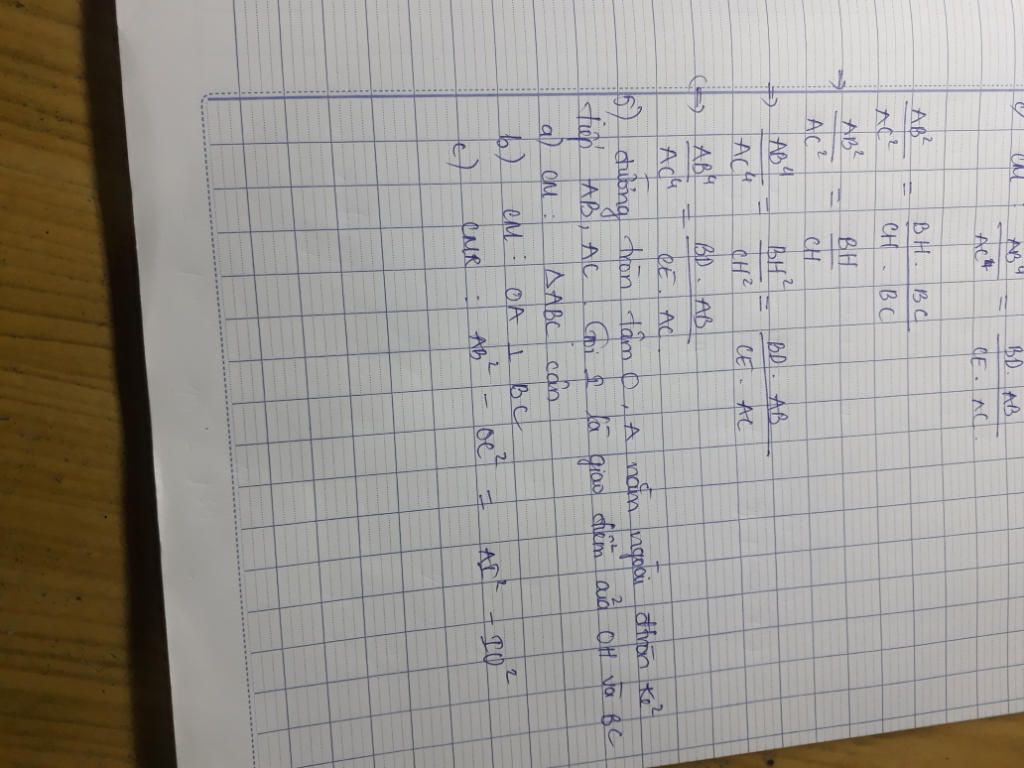 c) CM: AB⁴/AC⁴ = BD.AB/CE.AC
AB²/AC² = BH.BC/CH.BC
=> AB²/AC² = BH/CH
=> AB⁴/AC⁴ = BH²/CH² = BD.AB/CE.AC
(=) AB⁴/AC⁴ = BD.AB/CE.AC
5) đường tròn tâm O, A nằm ngoài đtròn kẻ
tiến AB, AC. Gọi I là giao điểm của OH và BC
a) CM: ΔABC cân
b) CM: OA ⊥ BC
c) CMR: AB² - OC² = AI² - IO²